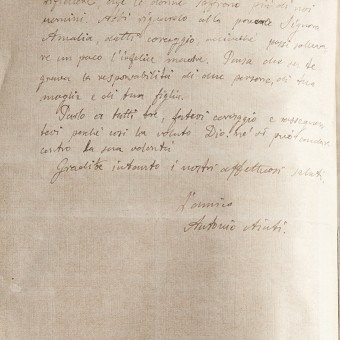 che le donne soffrono più di noi
uomini. Abbi riguardo alla povera Signora
Amalia,
re un poco l'infelice madre. Pensa che su te
grava la responsabilità di due persone, di tua
moglie e di tua figlia.
Parlo a tutti tre, fatevi coraggio e rassegna
tevi perché così ha voluto Dio, né si può andare
contro la sua volontà
Gradite intanto i nostri affettuosi saluti.
l'amico
Antonio